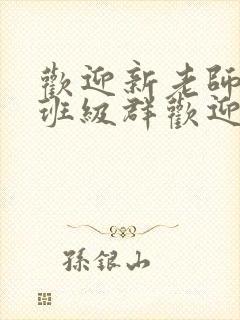 歡迎新老師
班級群歡迎
孫銀山